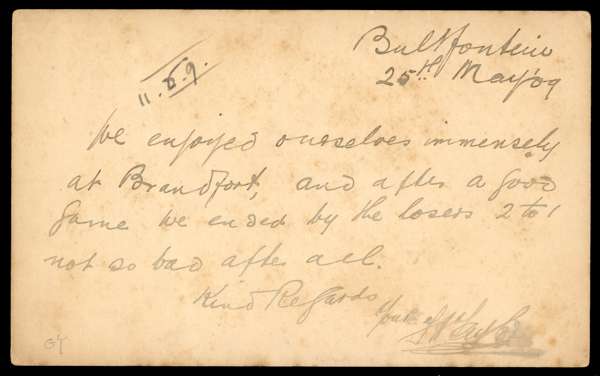 Bultfontein
25th May 09
11.6.9.
We enjoyed ourselves immensely
at Brandfort, and after a good
game we ended by the losers 2 to 1
not so bad after all.
Kind Regards